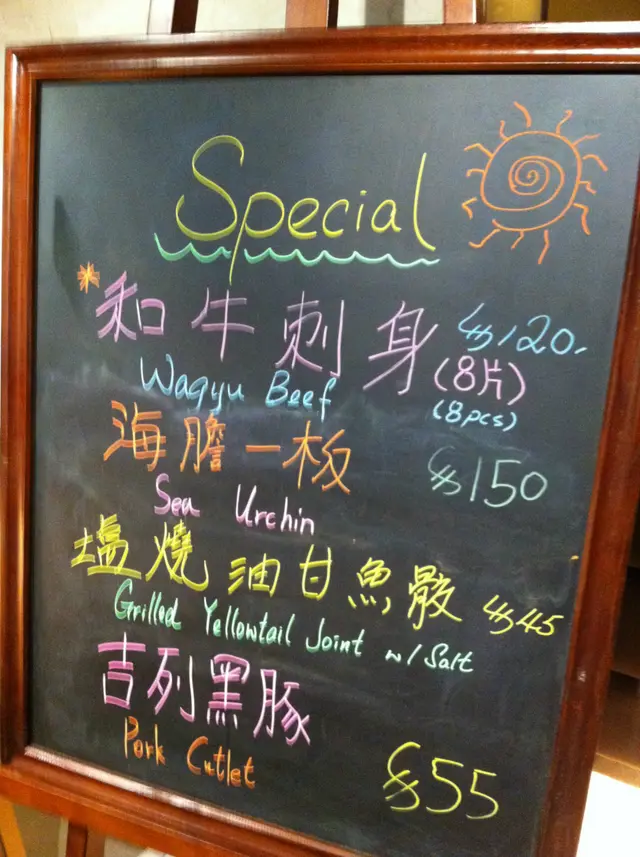 Special
*和牛刺身 $120.
(8片)
Wagyu Beef (8pcs)
海膽一板 $150
Sea Urchin
塩燒油甘魚骰 $45
Grilled Yellowtail Joint w/ Salt
吉列黑豚
Pork Cutlet $55